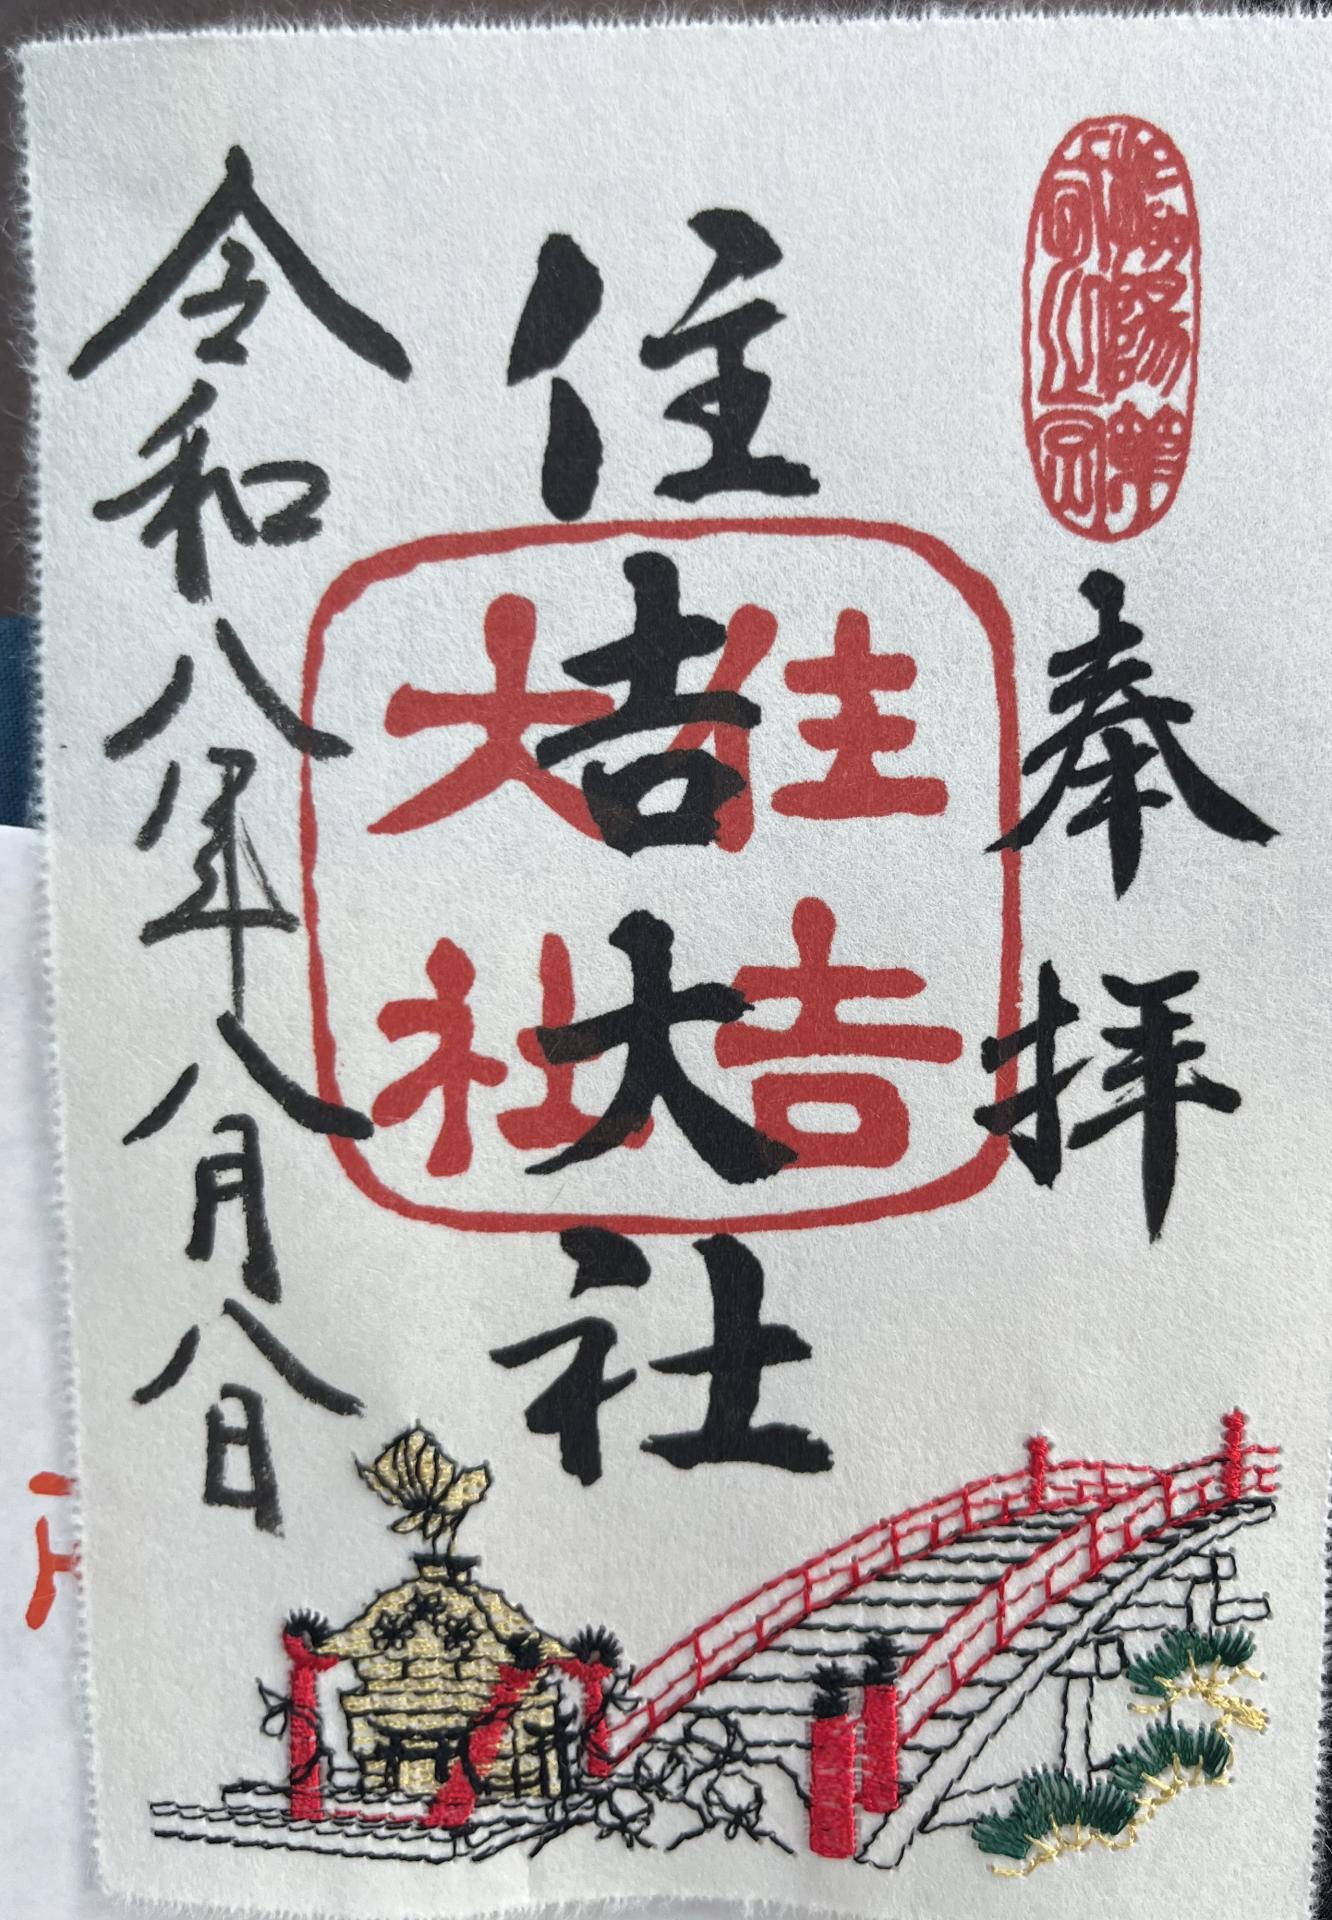 奉拝
住吉大社
住吉
大社
令和八年八月八日